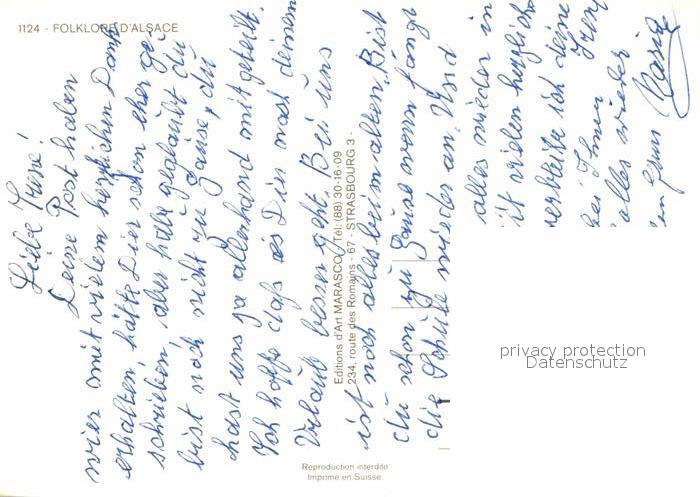 1124 - FOLKLORE D'ALSACE
Liebe Irene!
Deine Post haben
wier mit vielem herzlichen Dank
erhalten, hätte Dier schon eher ge
schrieben, aber habe geglaubt du
bist noch nicht zu Hause, du
hast uns ja allerhand mitgeteilt.
Ich hoffe das es Dir nach deinem
Urlaub besser geht. Bei uns
ist noch alles beim alten. Bist
du schon zu Hause wann fängt
die Schule wieder an. Und
alles wieder in
vielen herzliche
verbleibe ich deine
alles wieder
Editions d'Art MARASCO - Tél: (88) 30-16-09
234, route des Romains - 67 - STRASBOURG 3 -
privacy protection
Datenschutz
Reproduction interdite
Imprimé en Suisse